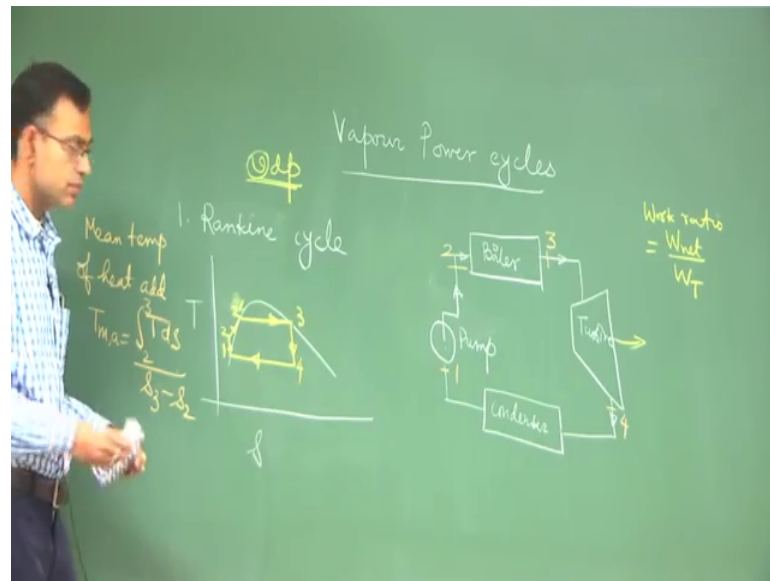 Vapour Power cycles
vdp
1. Rankine cycle
Mean temp
of heat add
Tm,a = ∫₂³ Tds
s₃ - s₂
T
2'
3
2
1
4
s
2
Boiler
3
Turbine
Pump
1
Condenser
4
Work ratio
= Wnet
WT